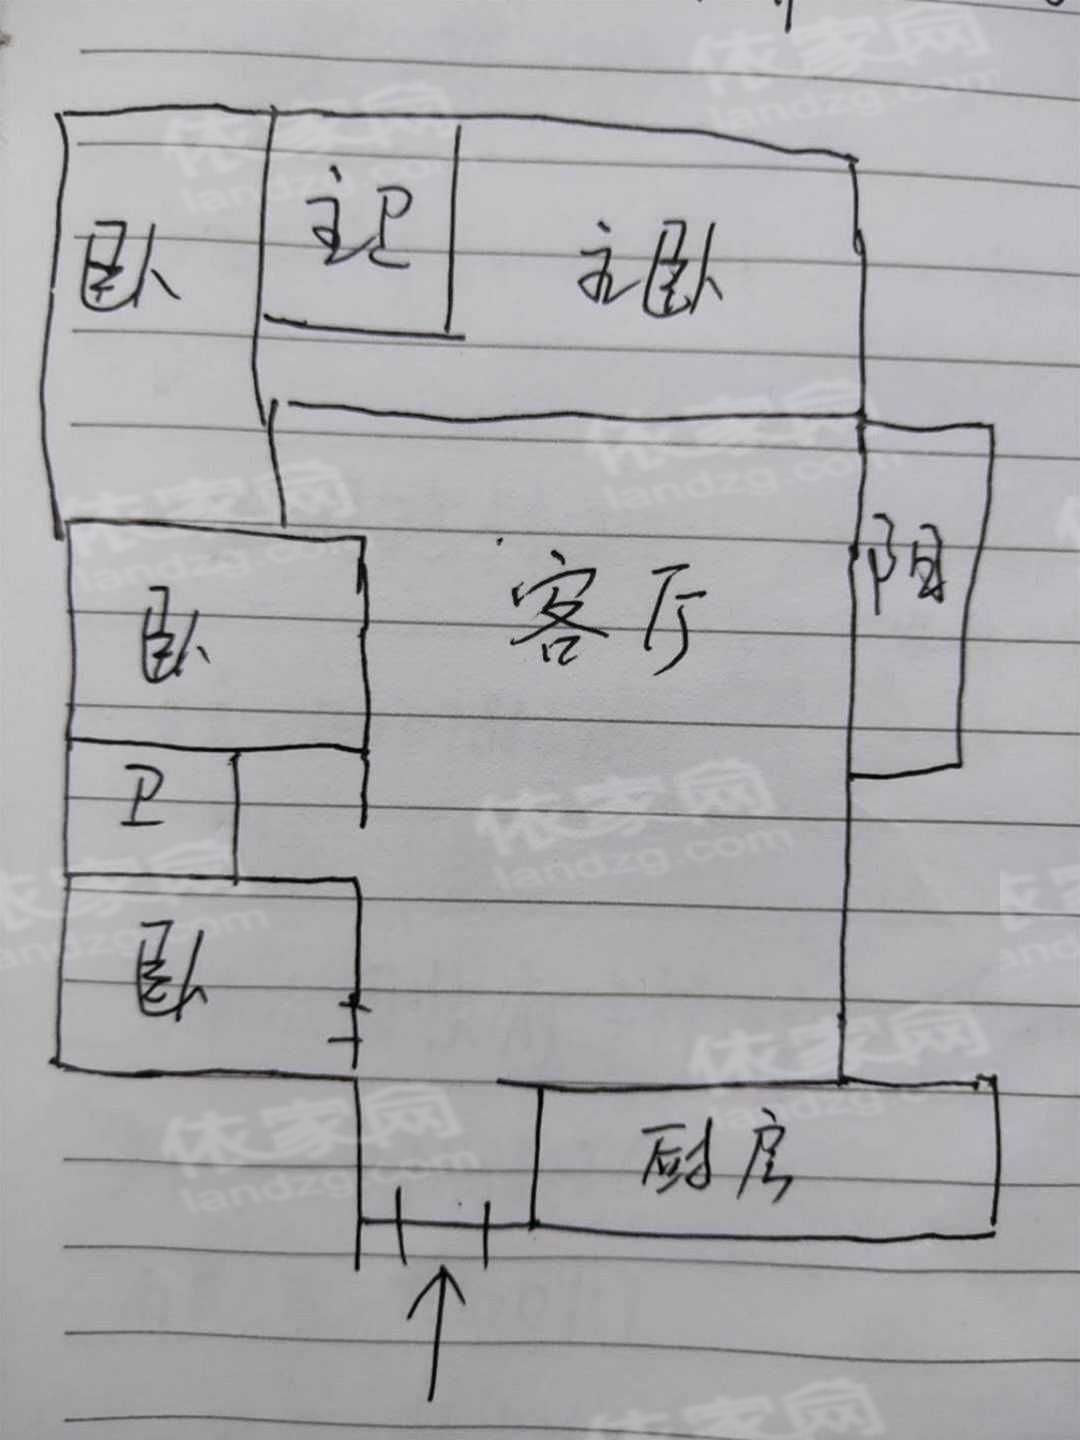 卧
主卫
主卧
客厅
阳
卧
卫
卧
厨房
依家网
landzg.com